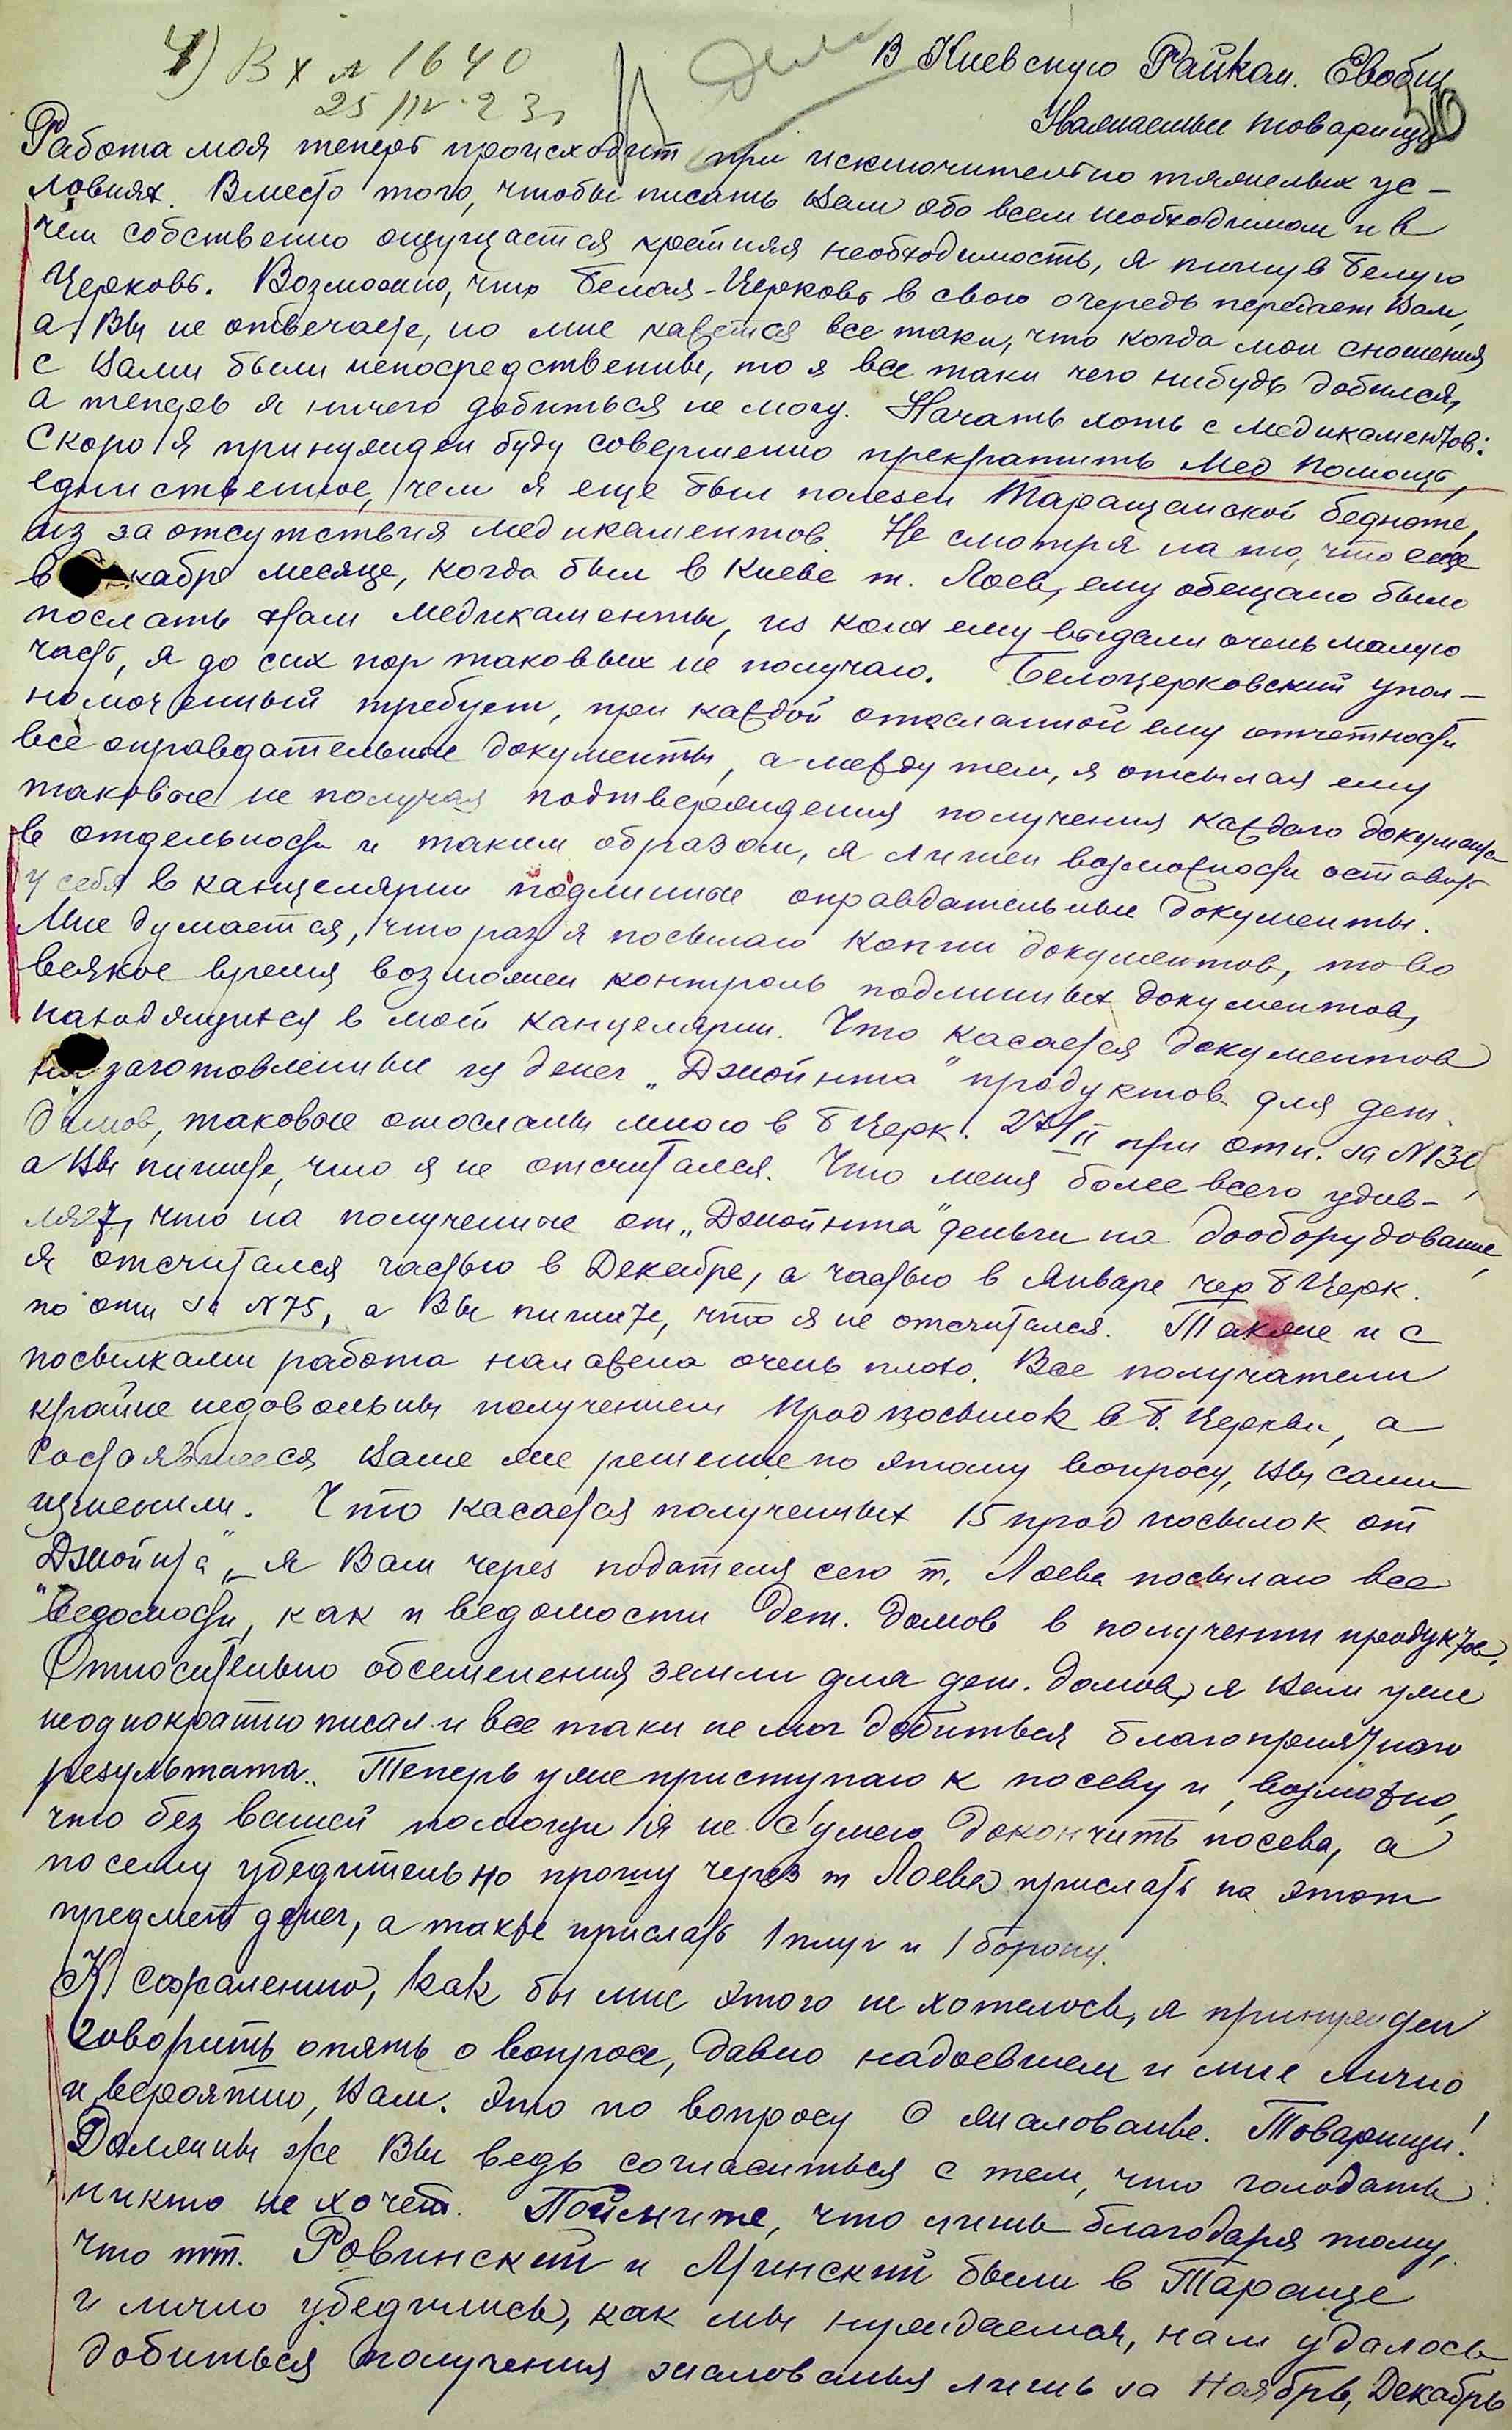 4) Вх № 1640
25/IV-23
Дело
В Киевскую Райком. Евобщ
Уважаемые товарищи
Работа моя теперь происходит при исключительно тяжелых ус-
ловиях. Вместо того, чтобы писать Вам обо всем необходимом и в
чем собственно ощущается крайняя необходимость, я пишу в Белую
Церковь. Возможно, что Белая-Церковь в свою очередь передает Вам,
а Вы не отвечаете, но мне кажется все таки, что когда мои сношения
с Вами были непосредственны, то я все таки чего нибудь добился,
а теперь я ничего добиться не могу. Начать хоть с медикаментов:
Скоро я принужден буду совершенно прекратить Мед Помощь,
единственное, чем я еще был полезен Таращанской бедноте,
из за отсутствия медикаментов. Не смотря на то, что еще
в кабре месяце, когда был в Киеве т. Лоев, ему обещано было
послать Нам медикаменты, из коих ему выдали очень малую
часть, я до сих пор таковых не получаю. Белоцерковский упол-
номоченный требует, при каждой отосланной ему отчетности
все оправдательные документы, а между тем, я отсылая ему
таковые не получая подтверждения получения каждого документа
в отдельности и таким образом, я лишен возможности оставить
у себя в канцелярии подлинные оправдательные документы.
Мне думается, что раз я посылаю копии документов, то во
всякое время возможен контроль подлинных документов,
находящихся в моей канцелярии. Что касается документов
на заготовленные из денег „Джойнта" продуктов для дет.
домов, таковые отосланы мною в б Церк. 27/II при отн. за №130,
а Вы пишете, что я не отсчитался. Что меня более всего удив-
ляет, что на полученные от „Джойнта" деньги на дооборудование,
я отсчитался частью в Декабре, а частью в Январе чер б Церк.
по отн за №75, а Вы пишите, что я не отсчитался. Также и с
посылками работа налажена очень плохо. Все получатели
крайне недовольны получением прод посылок в б. Церкви, а
состоявшееся Ваше же решение по этому вопросу, Вы сами
изменили. Что касается полученных 15 прод посылок от
„Джойнта", я Вам через подателя сего т. Лоева посылаю все
ведомости, как и ведомости дет. домов в получении продуктов.
Относительно обсеменения земли для дет. домов, я Вам уже
неоднократно писал и все таки не мог добиться благоприятного
результата. Теперь уже приступаю к посеву и, возможно,
что без вашей помощи я не с'умею докончить посева, а
посему убедительно прошу через т Лоева прислать на этот
предмет денег, а также прислать 1 плуг и 1 борону.
К сожалению, как бы мне этого не хотелось, я принужден
говорить опять о вопросе, давно надоевшем и мне лично
и, вероятно, Вам. Это по вопросу о жалованье. Товарищи!
Должны же Вы ведь согласиться с тем, что голодать
никто не хочет. Поймите, что лишь благодаря тому,
что тт. Ровинский и Минский были в Тараще
и лично убедились, как мы нуждаемся, нам удалось
добиться получения жалованья лишь за Ноябрь, Декабрь